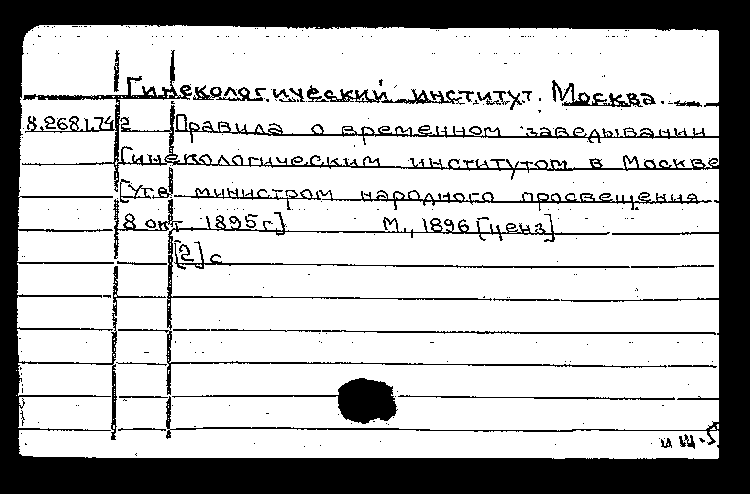 Гинекологический институт. Москва.
8.268.1.742 Правила о временном заведывании
Гинекологическим институтом в Москве
[Утв. министром народного просвещения
8 окт. 1895 г.] М., 1896 [ценз]
[2] с